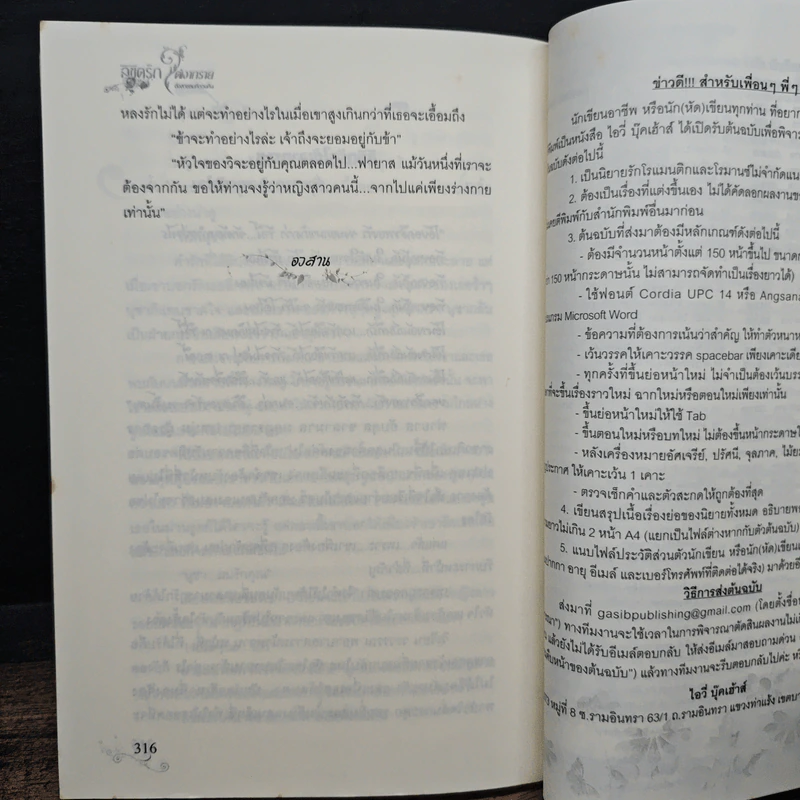 ลิขิตรัก
หลงรักไม่ได้ แต่จะทำอย่างไรในเมื่อเขาสูงเกินกว่าที่เธอจะเอื้อมถึง
"ข้าจะทำอย่างไรล่ะ เจ้าถึงจะยอมอยู่กับข้า"
"หัวใจของวิจะอยู่กับคุณตลอดไป...ฟายาส แม้วันหนึ่งที่เราจะ
ต้องจากกัน ขอให้ท่านจงรู้ว่าหญิงสาวคนนี้...จากไปแค่เพียงร่างกาย
เท่านั้น"
อวสาน
316
ข่าวดี!!! สำหรับเพื่อนๆ พี่ๆ
นักเขียนอาชีพ หรือนัก(หัด)เขียนทุกท่าน ที่อยาก
พิมพ์เป็นหนังสือ ไอวี่ บุ๊คเฮ้าส์ ได้เปิดรับต้นฉบับเพื่อพิจาร
ดังต่อไปนี้
1. เป็นนิยายรักโรแมนติกและโรมานซ์ไม่จำกัดแน
2. ต้องเป็นเรื่องที่แต่งขึ้นเอง ไม่ได้คัดลอกผลงานข
เคยตีพิมพ์กับสำนักพิมพ์อื่นมาก่อน
3. ต้นฉบับที่ส่งมาต้องมีหลักเกณฑ์ดังต่อไปนี้
- ต้องมีจำนวนหน้าตั้งแต่ 150 หน้าขึ้นไป ขนาดก
150 หน้ากระดาษนั้น ไม่สามารถจัดทำเป็นเรื่องยาวได้)
- ใช้ฟอนต์ Cordia UPC 14 หรือ Angsana
Microsoft Word
- ข้อความที่ต้องการเน้นว่าสำคัญ ให้ทำตัวหนาห
- เว้นวรรคให้เคาะวรรค spacebar เพียงเคาะเดีย
- ทุกครั้งที่ขึ้นย่อหน้าใหม่ ไม่จำเป็นต้องเว้นบรร
ที่จะขึ้นเรื่องราวใหม่ ฉากใหม่หรือตอนใหม่เพียงเท่านั้น
- ขึ้นย่อหน้าใหม่ให้ใช้ Tab
- ขึ้นตอนใหม่หรือบทใหม่ ไม่ต้องขึ้นหน้ากระดาษใ
- หลังเครื่องหมายอัศเจรีย์, ปรัศนี, จุลภาค, ไม้ย
ให้เคาะเว้น 1 เคาะ
- ตรวจเช็กคำและตัวสะกดให้ถูกต้องที่สุด
4. เขียนสรุปเนื้อเรื่องย่อของนิยายทั้งหมด อธิบายพ
ไม่เกิน 2 หน้า A4 (แยกเป็นไฟล์ต่างหากกับตัวต้นฉบับ)
5. แนบไฟล์ประวัติส่วนตัวนักเขียน หรือนัก(หัด)เขียน
อายุ อีเมล์ และเบอร์โทรศัพท์ที่ติดต่อได้จริง) มาด้วย
วิธีการส่งต้นฉบับ
ส่งมาที่ gasibpublishing@gmail.com (โดยตั้งชื่อ
ทางทีมงานจะใช้เวลาในการพิจารณาตัดสินผลงานไม่เกิ
แล้วยังไม่ได้รับอีเมล์ตอบกลับ ให้ส่งอีเมล์มาสอบถามด่วน
หน้าของต้นฉบับ") แล้วทางทีมงานจะรีบตอบกลับไปค่ะ
ไอวี่ บุ๊คเฮ้าส์
หมู่ที่ 8 ซ.รามอินทรา 63/1 ถ.รามอินทรา แขวงท่าแร้ง เขตบา